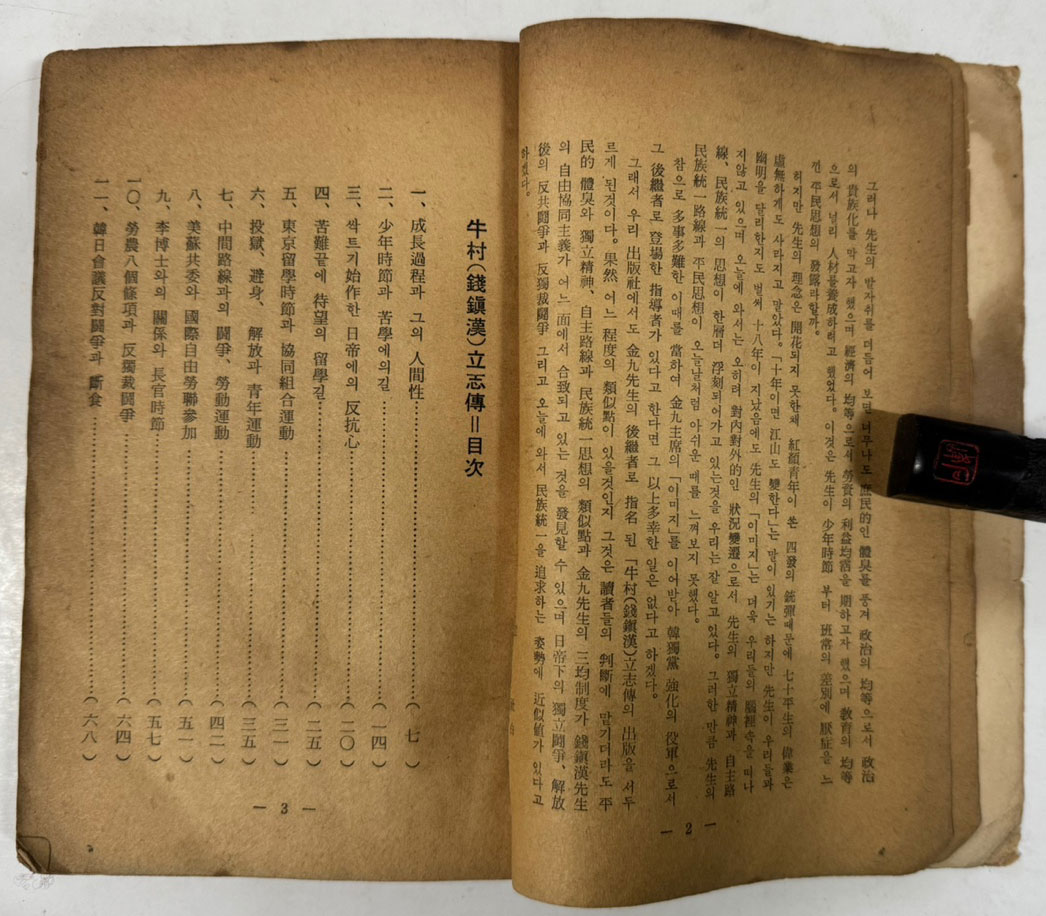 그러나 先生의 발자취를 더듬어 보면 너무나도 庶民的인 體臭를 풍겨 政治의 均等으로서 政治
의 貴族化를 막고자 했으며 經濟의 均等으로서 勞資의 利益均霑을 期하고자 했으며 敎育의 均等
으로서 널리 人材를 養成하려고 했었다. 이것은 先生이 少年時節 부터 班常의 差別에 厭症을 느
낀 平民思想의 發露라할까.
허지만 先生의 理念은 開花되지 못한채 紅顔靑年이 쏜 四發의 銃彈때문에 七十平生의 偉業은
虛無하게도 사라지고 말았다。「十年이면 江山도 變한다」는 말이 있기는 하지만 先生이 우리들과
幽明을 달리한지도 벌써 十八年이 지났음에도 先生의「이미지」는 더욱 우리들의 腦裡속을 떠나
지않고 있으며 오늘에 와서는 오히려 對內對外的인 狀況變遷으로서 先生의 獨立精神과 自主路
線、民族統一의 思想이 한層더 浮刻되어가고 있는것을 우리는 잘 알고 있다。그러한 만큼 先生의
民族統一路線과 平民思想이 오늘날처럼 아쉬운 때를 느껴보지 못했다。
참으로 多事多難한 이때를 當하여 金九主席의「이미지」를 이어받아 韓獨黨 強化의 役軍으로서
그 後繼者로 登場한 指導者가 있다고 한다면 그 以上 多幸한 일은 없다고 하겠다。
그래서 우리 出版社에서도 金九先生의 後繼者로 指名 된「牛村(錢鎭漢)立志傳의 出版을 서두
르게 된것이다。果然 어느 程度의 類似點이 있을것인지 그것은 讀者들의 判斷에 맡기더라도 平
民的 體臭와 獨立精神、自主路線과 民族統一思想의 類似點과 金九先生의 三均制度가 錢鎭漢先生
의 自由協同主義가 어느 面에서 合致되고 있는 것을 發見할 수 있으며 日帝下의 獨立鬪爭、解放
後의 反共鬪爭과 反獨裁鬪爭 그리고 오늘에 와서 民族統一을 追求하는 姿勢에 近似値가 있다고
하겠다。
— 2 —
牛村(錢鎭漢)立志傳=目次
一、成長過程과 그의 人間性……(七)
二、少年時節과 苦學에의길……(一四)
三、싹트기始作한 日帝에의 反抗心……(二〇)
四、苦難끝에 待望의 留學길……(二五)
五、東京留學時節과 協同組合運動……(三一)
六、投獄、避身、解放과 靑年運動……(三五)
七、中間路線과의 鬪爭、勞動運動……(四二)
八、美蘇共委와 國際自由勞聯參加……(五一)
九、李博士와의 關係와 長官時節……(五七)
一〇、勞農八個條項과 反獨裁鬪爭……(六四)
一一、韓日會議反對鬪爭과 斷食……(六八)
— 3 —